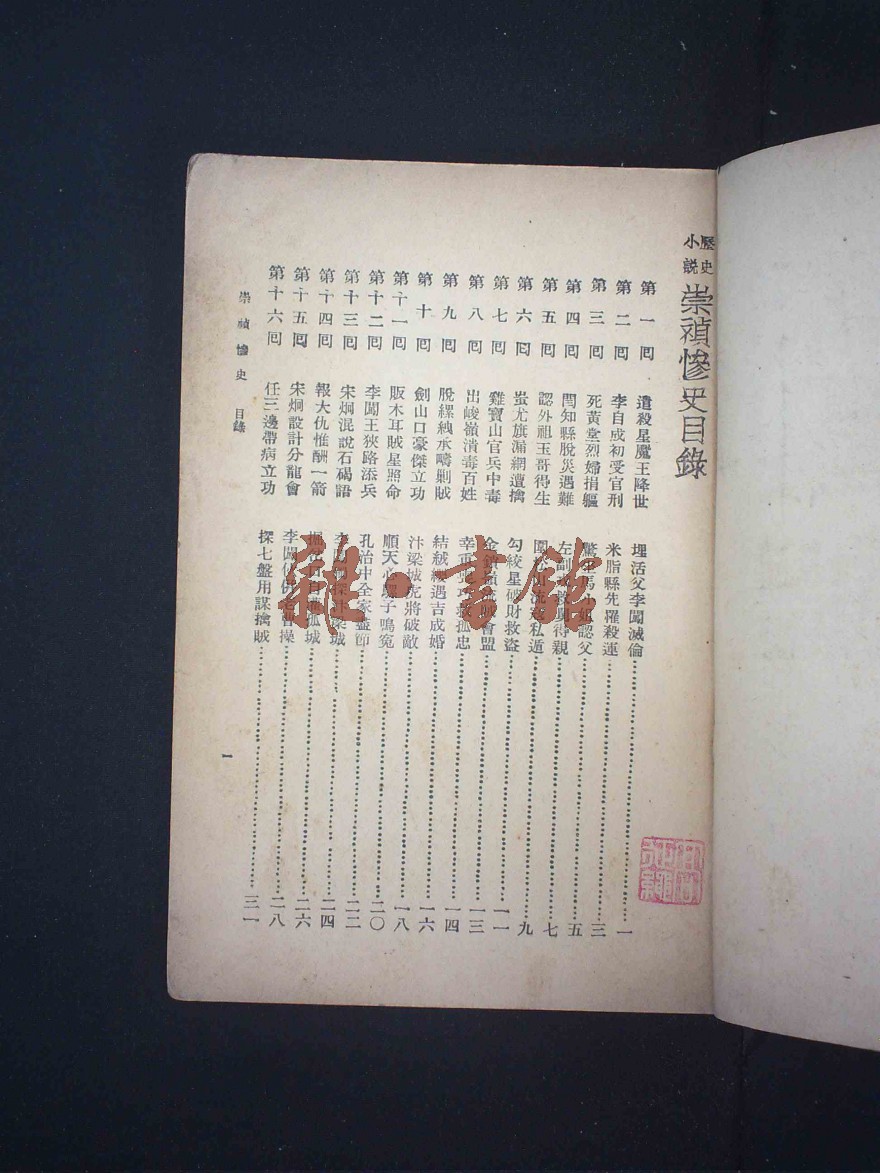 歷史小說 崇禎慘史目錄
第一回 遣殺星魔王降世 埋活父李闖滅倫 一
第二回 李自成初受官刑 米脂縣先罹殺運 三
第三回 死黃堂烈婦捐軀 認父 五
第四回 閻知縣脫災遇難 左副 得親 七
第五回 認外祖玉哥得生 私遁 九
第六回 蚩尤旗漏網遭擒 勾絞星破財救盜 一一
第七回 雞寶山官兵中毒 金 會盟 一三
第八回 出峻嶺潰毒百姓 幸 孤忠 一四
第九回 脫縲絏承疇剿賊 結絨纓遇吉成婚 一六
第十回 劍山口豪傑立功 汴梁城 將破敵 一八
第十一回 版木耳賊星照命 順天心騾子鳴冤 二〇
第十二回 李闖王狹路添兵 孔治中全家盡節 二二
第十三回 宋炯混說石碣語 李闖 探汴梁城 二四
第十四回 報大仇惟酬一箭 孤城 二六
第十五回 宋炯設計分龍會 李闖 曹操 二八
第十六回 任三邊帶病立功 探七盤用謀擒賊 三一
崇禎慘史 目錄
一
雜·書館